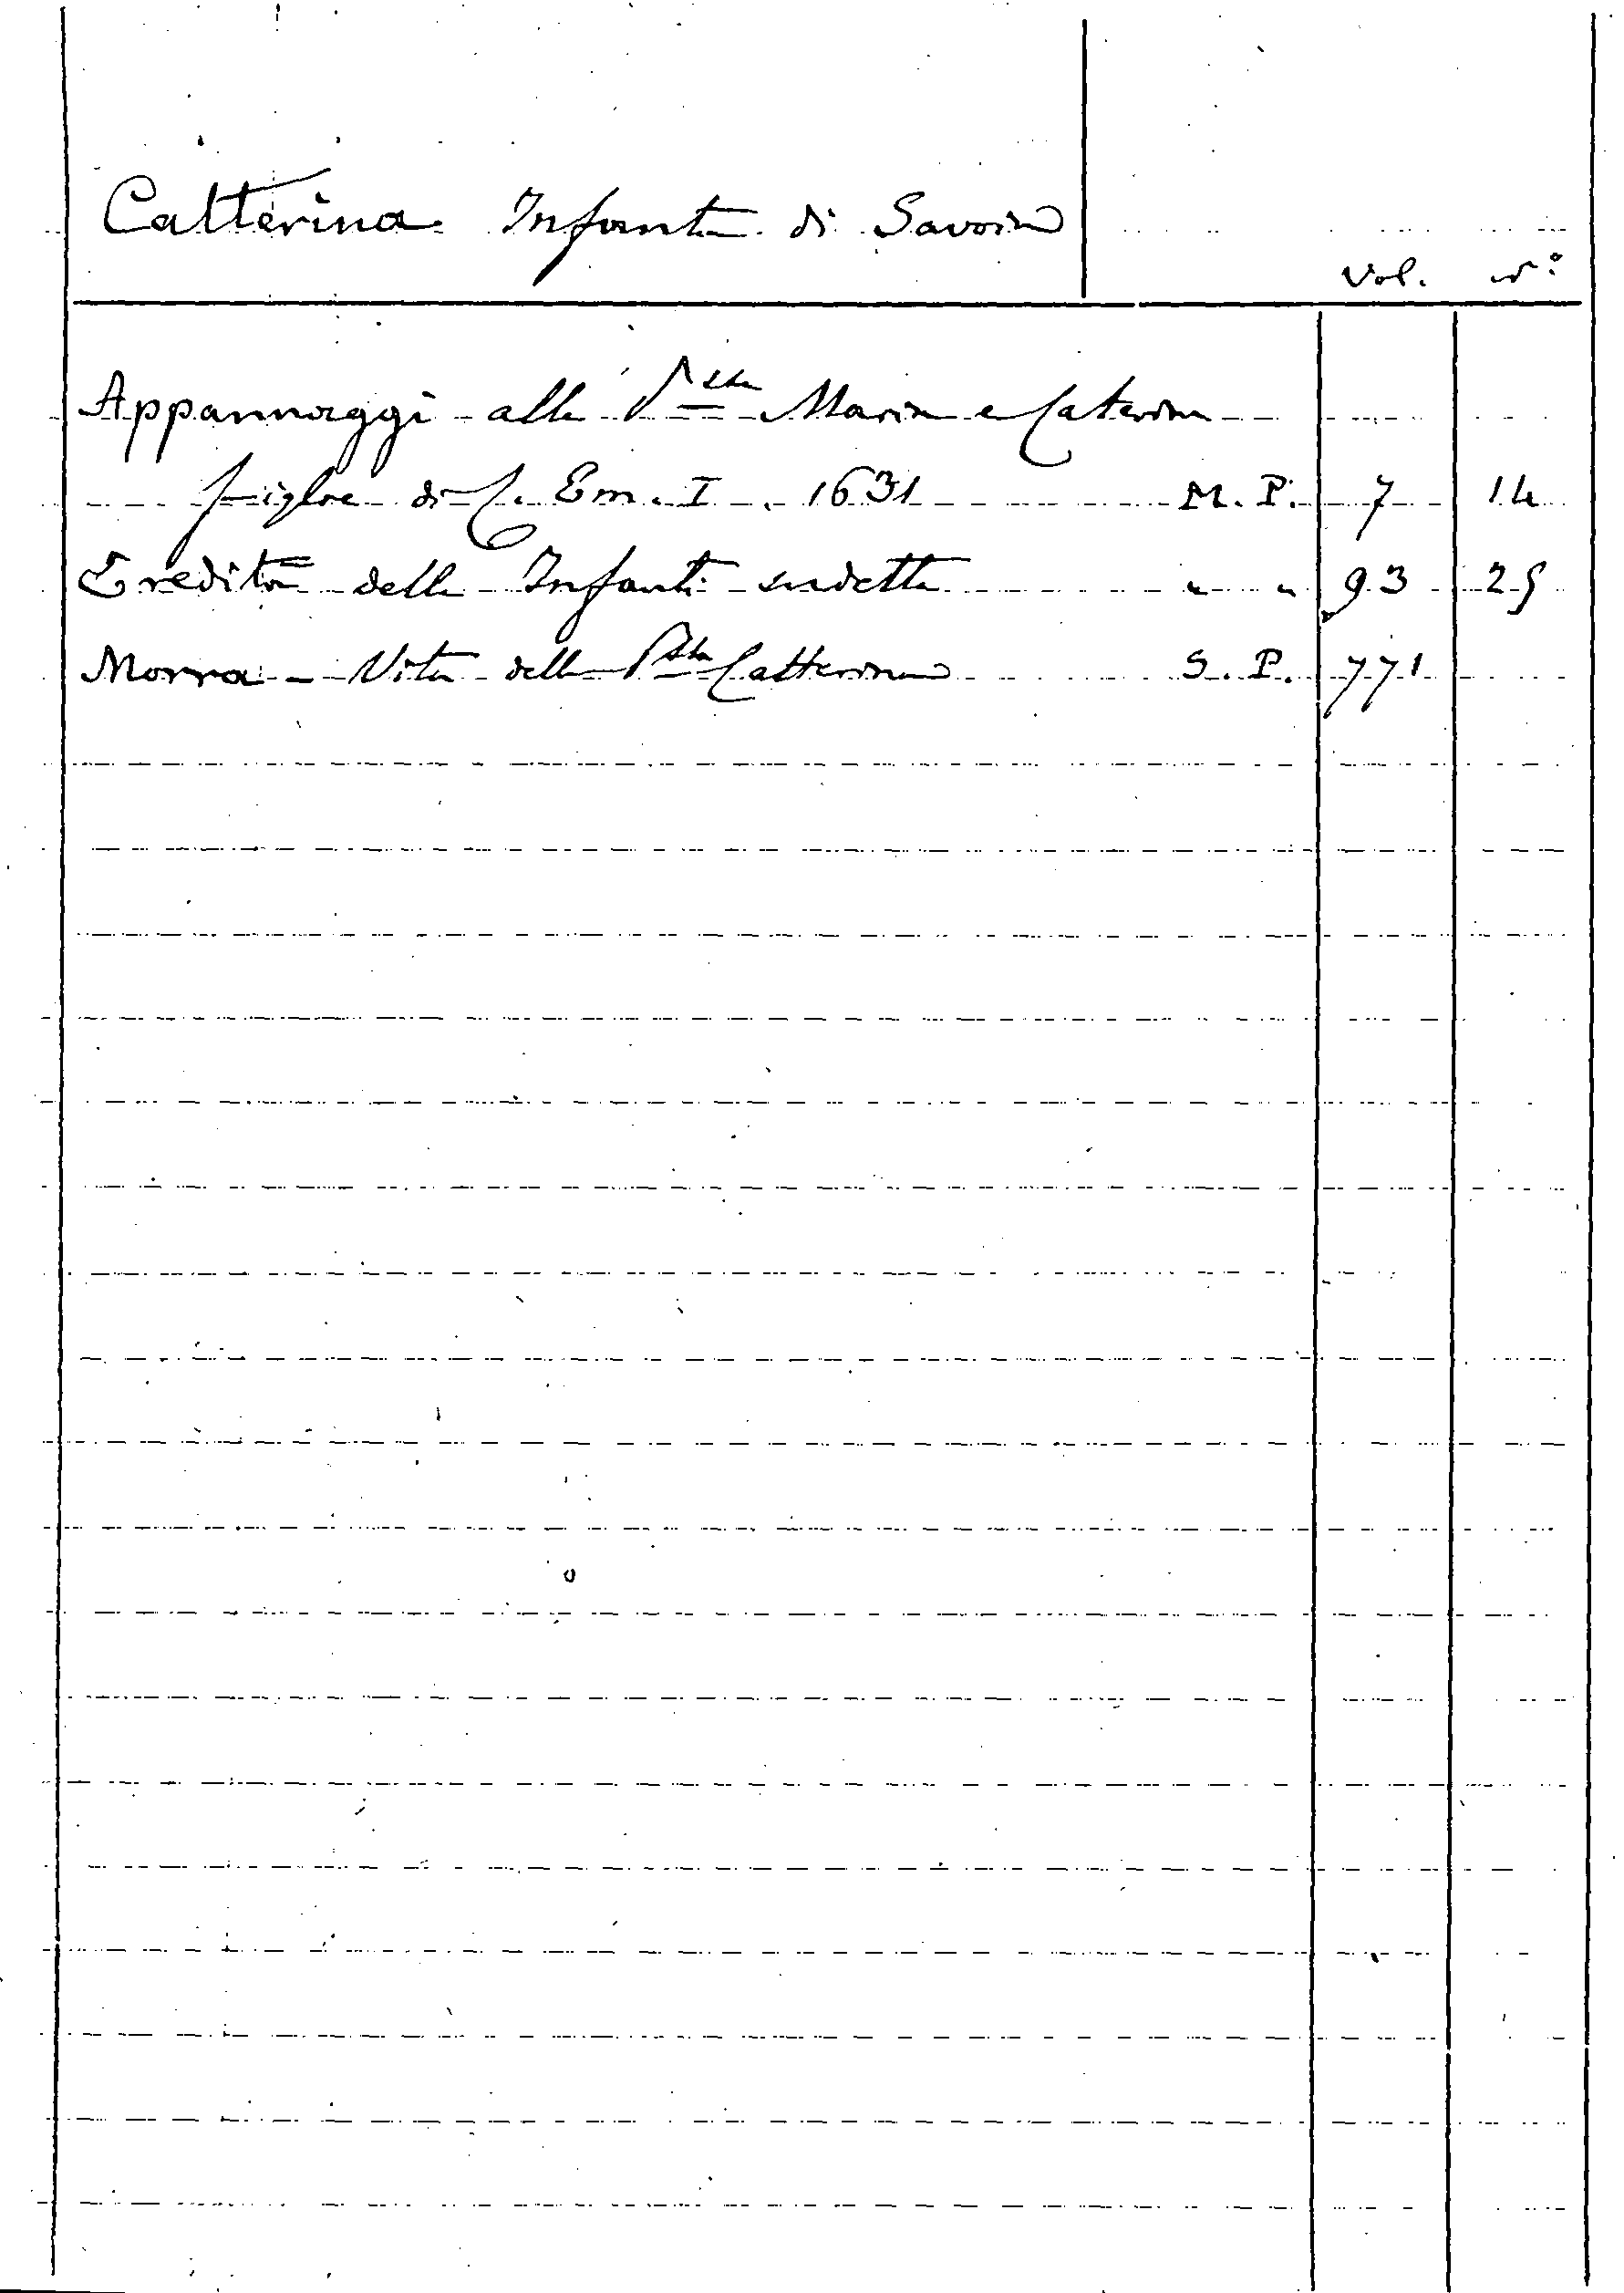 Catterina Infanta di Savoia
Vol. N°
Appannaggi alle P.sse Maria e Caterina
figlie di C. Em. I. 1631 M. P. 7 14
Eredità delle Infanti sudette " " 93 25
Morra - Vita della P.ssa Catterina S. P. 771